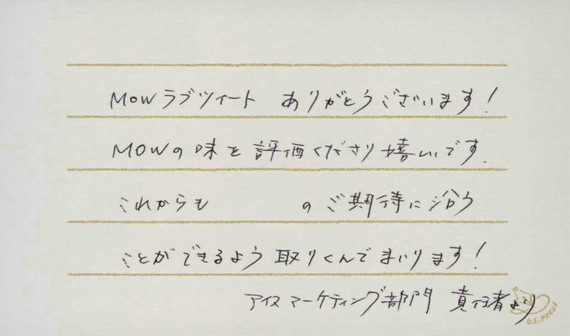 MOWラブツイート ありがとうございます!
MOWの味を評価くださり嬉しいです.
これからも の ご期待に沿う
ことができるよう取りくんでまいります!
アイスマーケティング部門 責任者より
G.C.PRESS